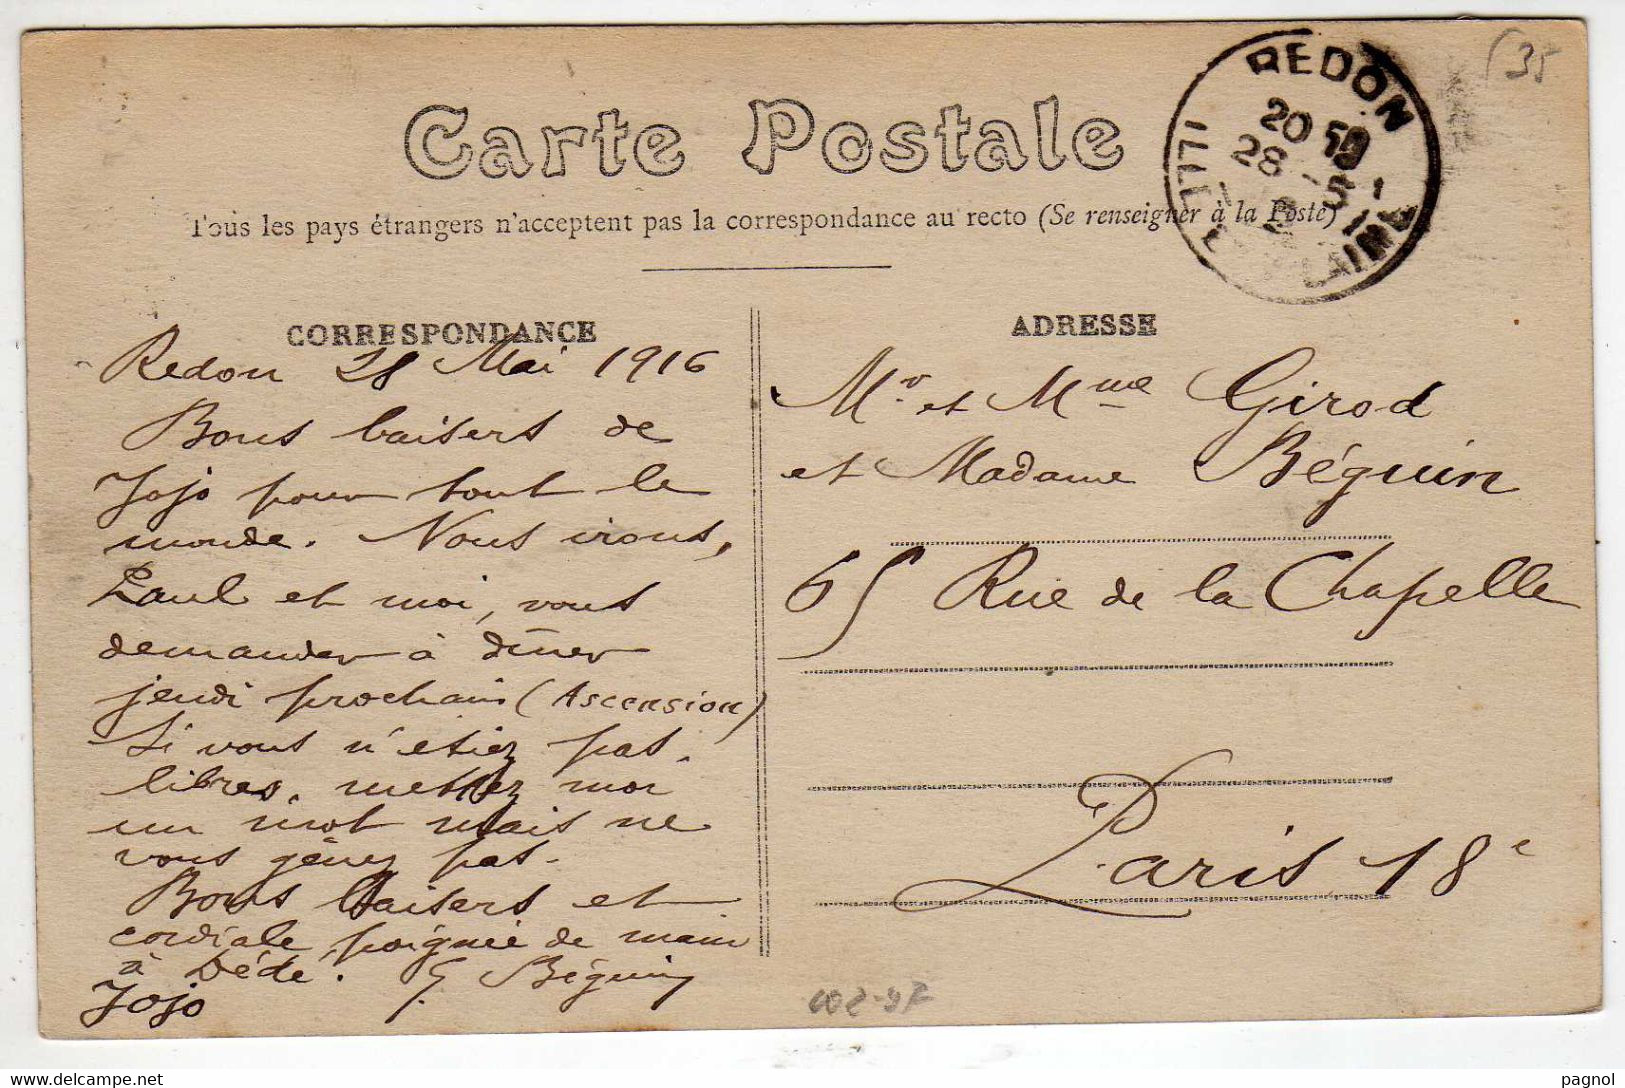 (35
Carte Postale
REDON
20 10
28 - 5
ILLE
LAINE
Tous les pays étrangers n'acceptent pas la correspondance au recto (Se renseigner à la Poste)
CORRESPONDANCE
Redon 28 Mai 1916
Bons baisers de
Jojo pour tout le
monde. Nous irons,
Paul et moi, vous
demander à dîner
jeudi prochain (Ascension)
Si vous n'étiez pas
libres, mettez moi
un mot mais ne
vous gênez pas.
Bons baisers et
cordiale poignée de main
à Dédé. G Béguin
Jojo
ADRESSE
Mr et Mme Girod
et Madame Béguin
65 Rue de la Chapelle
Paris 18e
pagnol